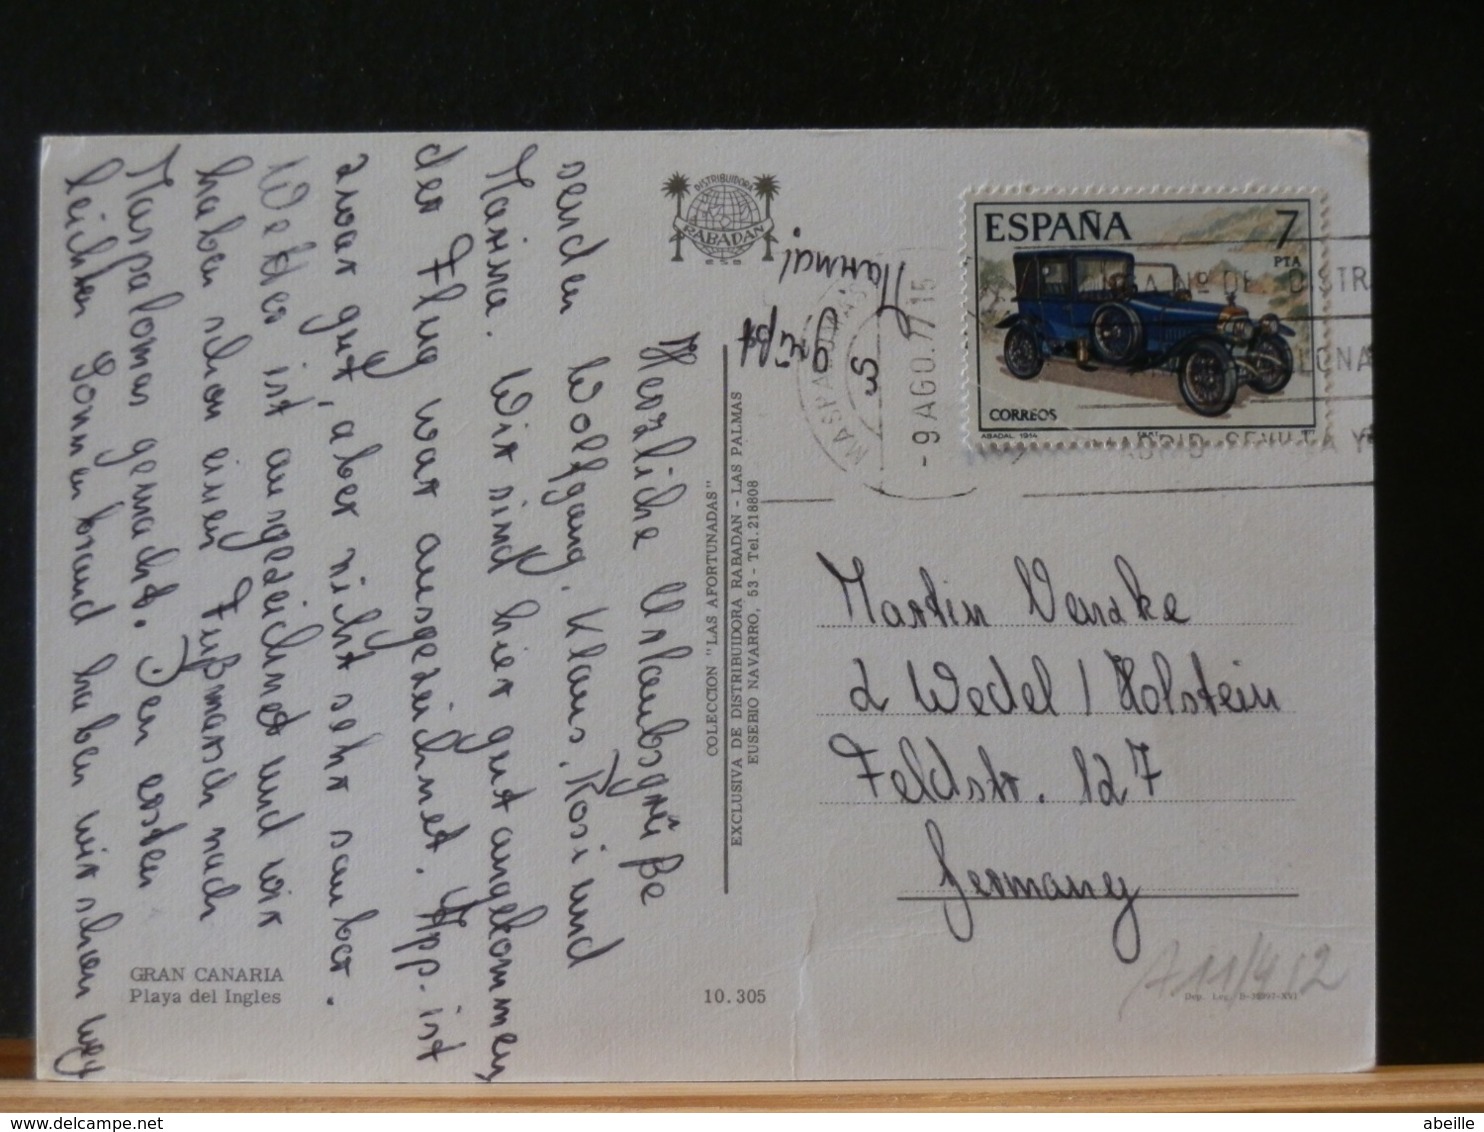 Herzliche Urlaubsgrüße
senden Wolfgang, Klaus, Rosi und
Marina. Wir sind hier gut angekommen,
der Flug war ausgezeichnet. App. ist
zwar gut, aber nicht sehr sauber.
Wetter ist ausgezeichnet und wir
haben schon einen Fußmarsch nach
Maspalomas gemacht. Den ersten
leichten Sonnenbrand haben wir schon weg
grüßt
Mamma!
DISTRIBUIDORA
RABADAN
COLECCION "LAS AFORTUNADAS"
EXCLUSIVA DE DISTRIBUIDORA RABADAN - LAS PALMAS
EUSEBIO NAVARRO, 53 - Tel. 218808
GRAN CANARIA
Playa del Ingles
10.305
ESPAÑA
7
PTA
CORREOS
ABADAL 1914
-9 AGO. 77 15
Martin Venzke
2 Wedel / Holstein
Feldstr. 127
Germany
A11/452
abeille